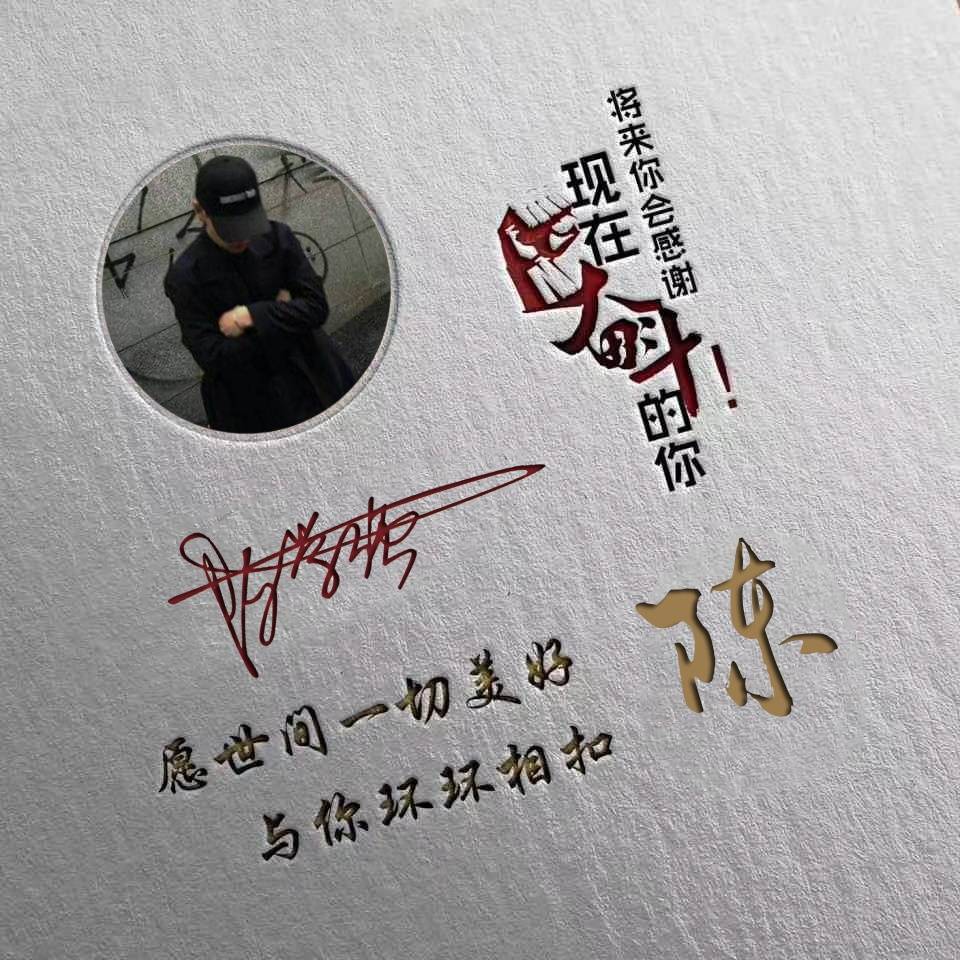 将来你会感谢
现在
奋斗!
的你
陈
愿世间一切美好
与你环环相扣